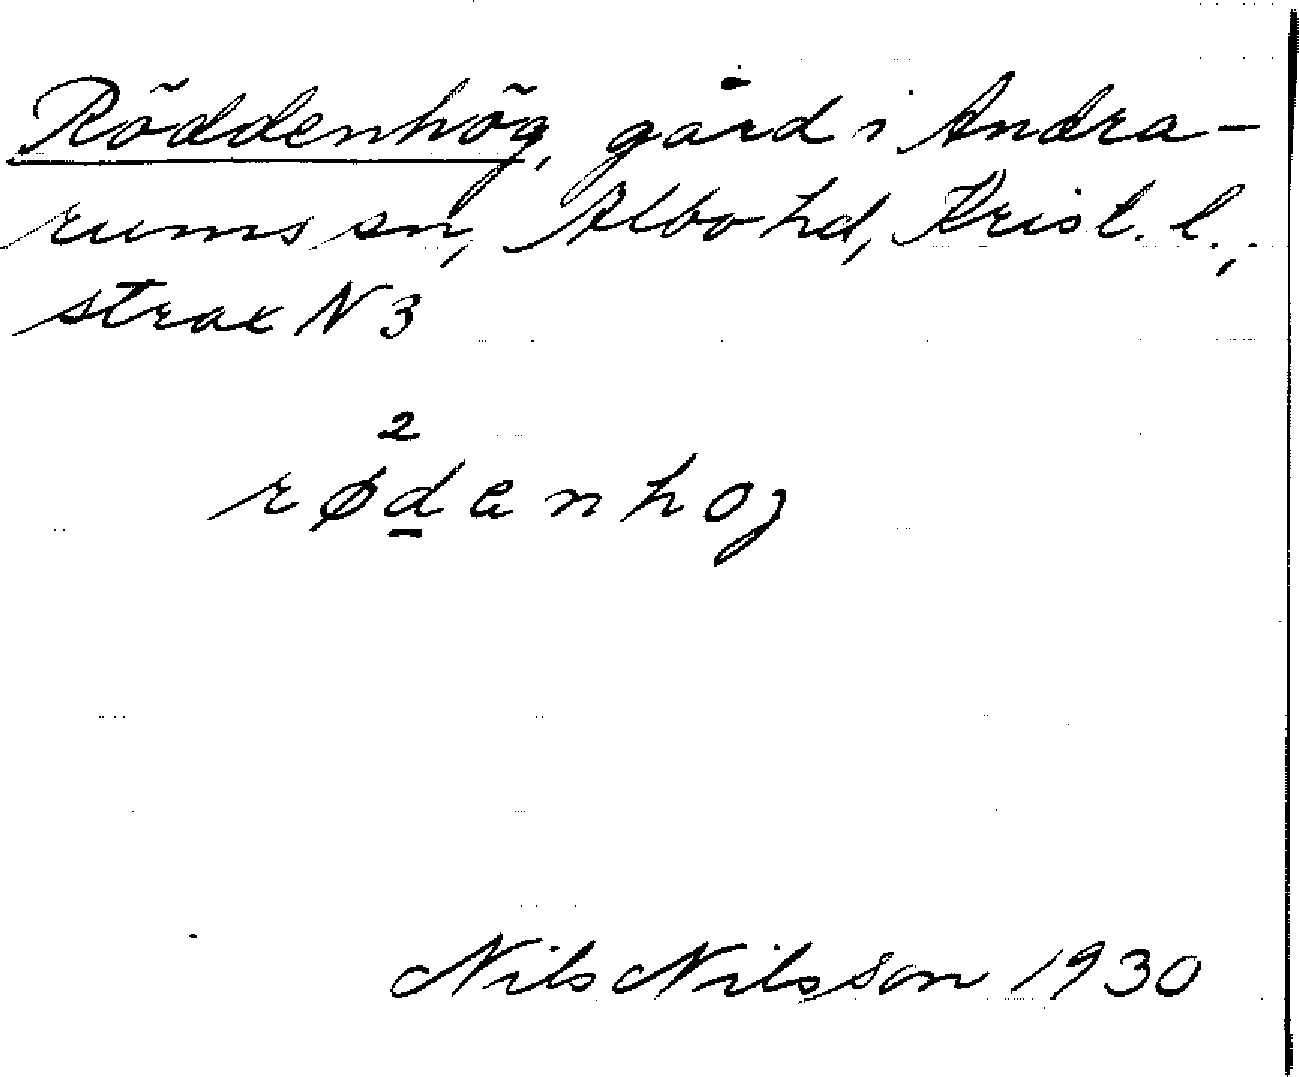 Röddenhög, gård i Andra-
rums sn, Albo hd, Krist. l.,
strax N 3
2
rødanhog
Nils Nilsson 1930